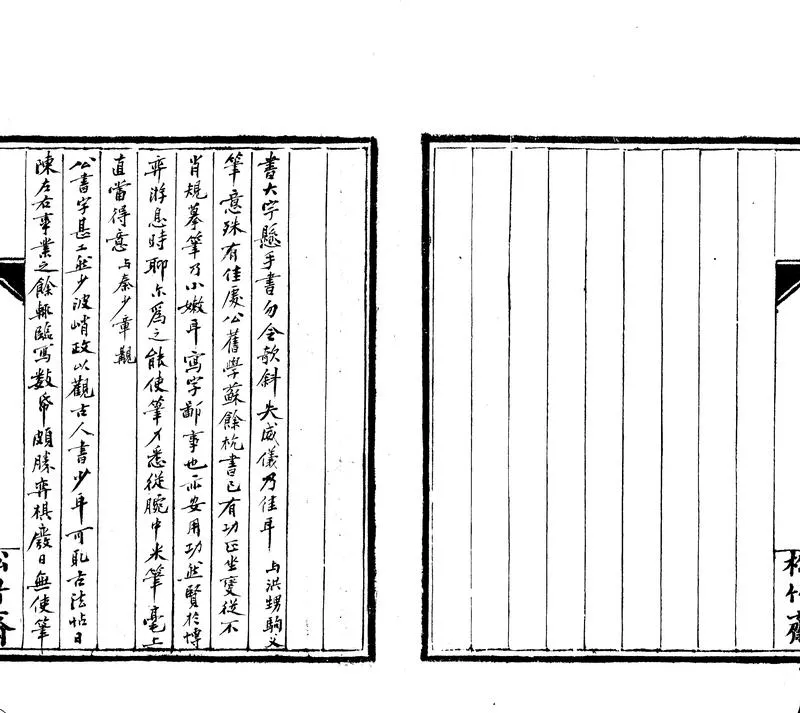 書大字懸手書勿令欹斜失威儀乃佳耳 与洪甥駒父
筆意殊有佳處公舊學蘇餘杭書已有功正坐變從不
肖規摹筆乃小嫩耳寫字鄙事也亦安用功然賢於博
弈游息時聊尓爲之能使筆力悉從腕中来筆毫上
直當得意 与秦少章觀
公書字甚工然少波峭政以觀古人書少耳可取古法帖日
陳左右事業之餘輒臨寫數帋頗勝弈棋廢日無使筆
松竹齋